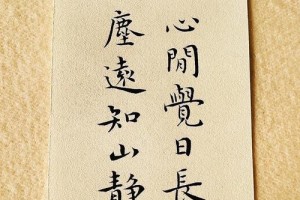 心閒覺日長
塵遠知山靜